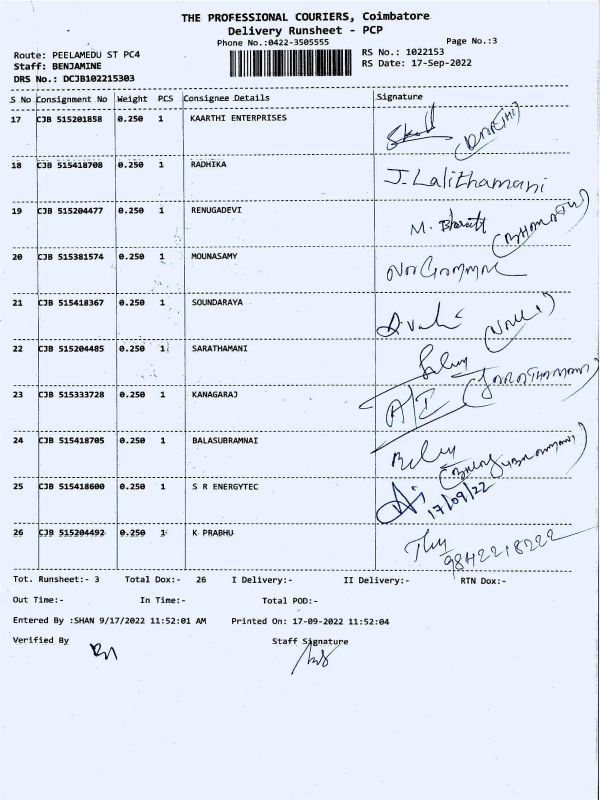 THE PROFESSIONAL COURIERS, Coimbatore
Delivery Runsheet - PCP
Phone No.:0422-3505555
Page No.:3
Route: PEELAMEDU ST PC4
RS No.: 1022153
Staff: BENJAMINE
RS Date: 17-Sep-2022
DRS No.: DCJB102215303
S No Consignment No Weight PCS Consignee Details Signature
17 CJB 515201858 0.250 1 KAARTHI ENTERPRISES
18 CJB 515418708 0.250 1 RADHIKA J. Lalithamani
19 CJB 515204477 0.250 1 RENUGADEVI M. Bharath
20 CJB 515381574 0.250 1 MOUNASAMY
21 CJB 515418367 0.250 1 SOUNDARAYA
22 CJB 515204485 0.250 1 SARATHAMANI
23 CJB 515333728 0.250 1 KANAGARAJ
24 CJB 515418705 0.250 1 BALASUBRAMNAI
25 CJB 515418600 0.250 1 S R ENERGYTEC 17/09/22
26 CJB 515204492 0.250 1 K PRABHU 9842218222
Tot. Runsheet:- 3 Total Dox:- 26 I Delivery:- II Delivery:- RTN Dox:-
Out Time:- In Time:- Total POD:-
Entered By :SHAN 9/17/2022 11:52:01 AM Printed On: 17-09-2022 11:52:04
Verified By Staff Signature